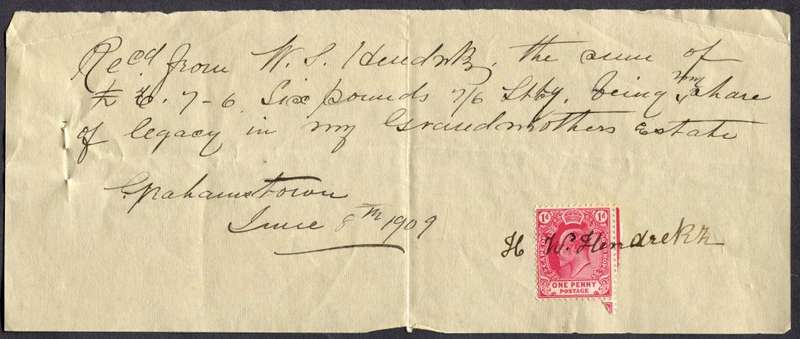 Recd from W. S. Hendrikz, the sum of
£ 6. 7-6 Six pounds 7/6 Stlg. being my share
of legacy in my Grandmothers Estate
Grahamstown
June 8th 1909
H W. Hendrikz
1d 1d
ONE PENNY
POSTAGE